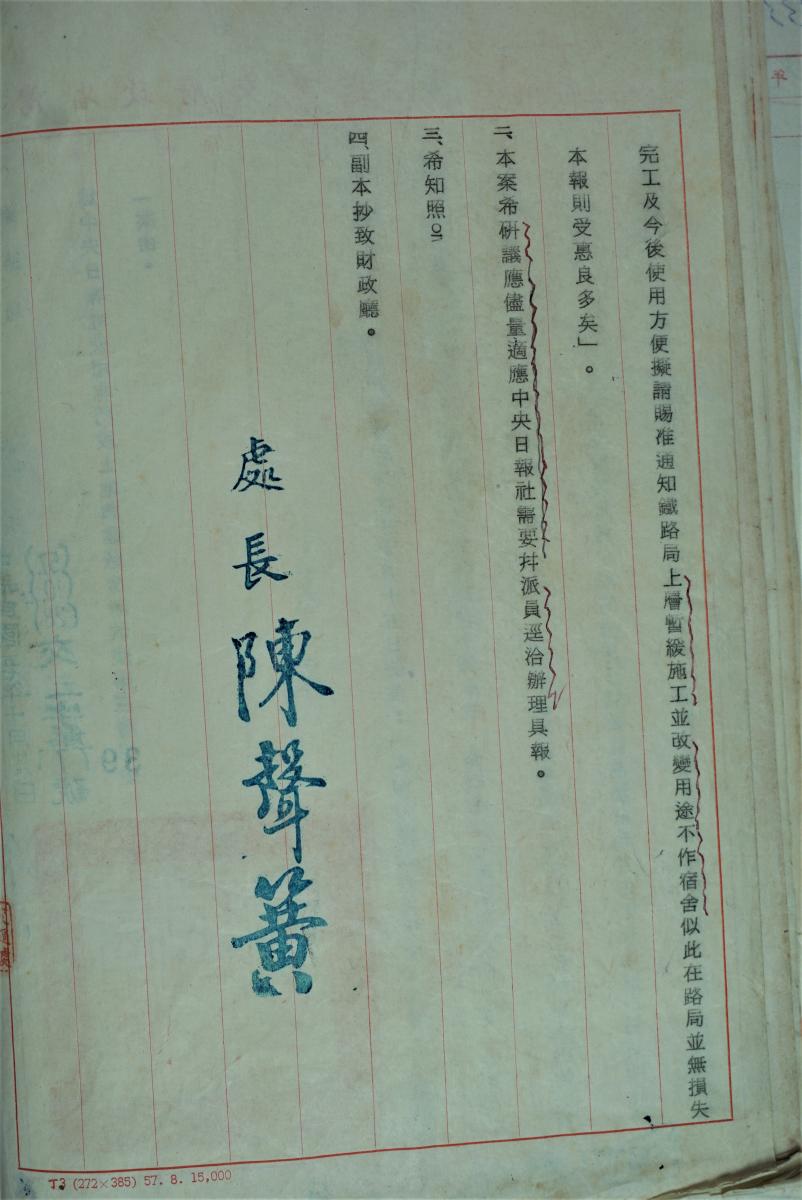 完工及今後使用方便擬請賜准通知鐵路局上層暫緩施工並改變用途不作宿舍似此在路局並無損失
本報則受惠良多矣」。
二、本案希研議應儘量適應中央日報社需要并派員逕洽辦理具報。
三、希知照。
四、副本抄致財政廳。
處長陳聲簧
J3 (272×385) 57. 8. 15,000